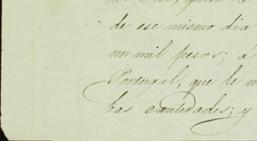 de ese mismo dia
un mil pesos; á
Portugal, que le
has cantidades; y